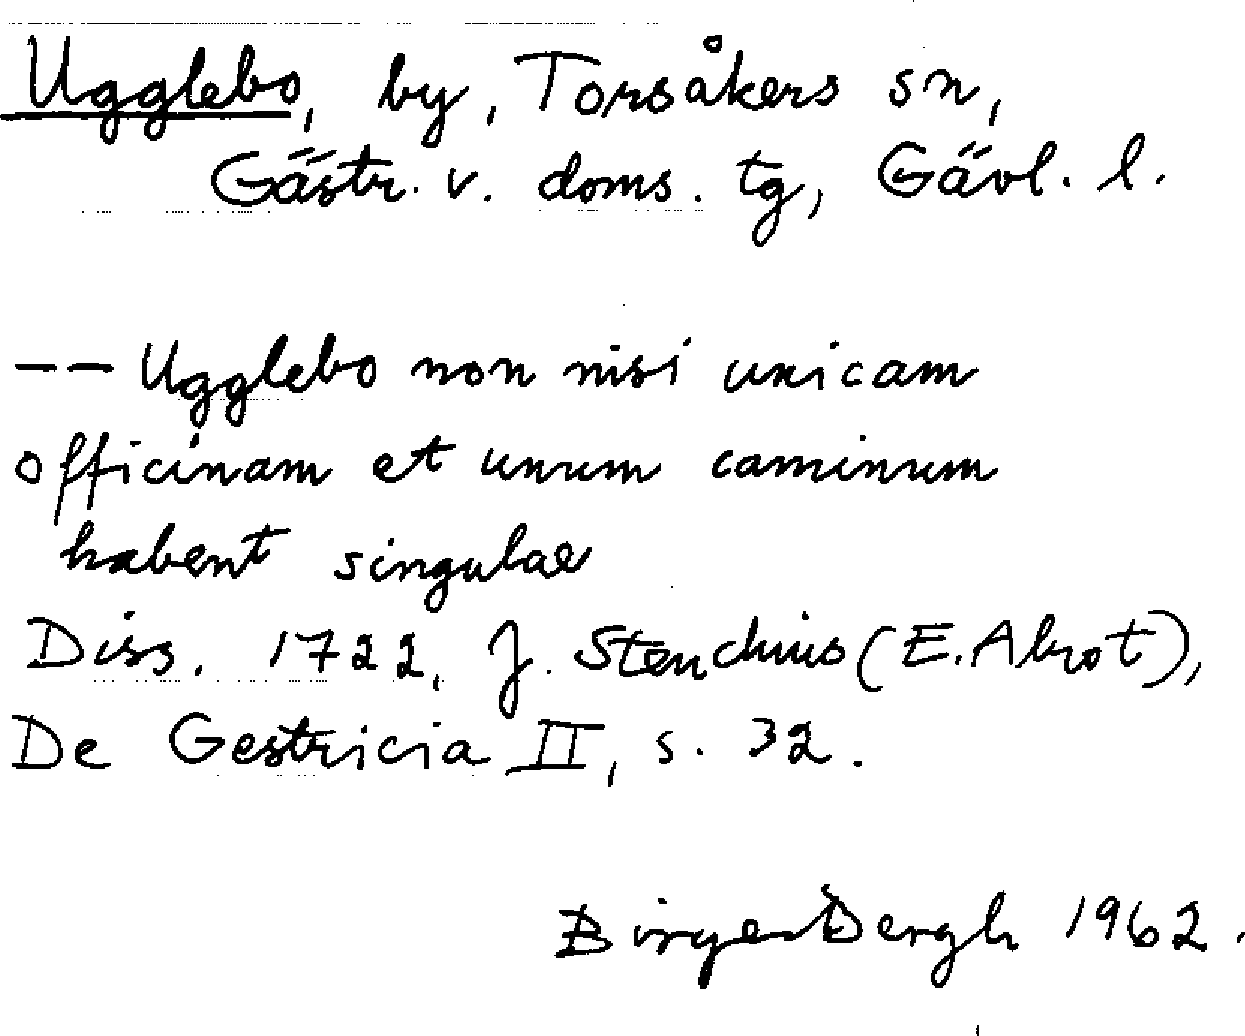 Ugglebo, by, Torsåkers sn,
Gästr. v. doms. tg, Gävl. l.
-- Ugglebo non nisi unicam
officinam et unum caminum
habent singulae
Diss. 1722, J. Stenchius (E. Alrot),
De Gestricia II, s. 32.
Birger Bergh 1962.